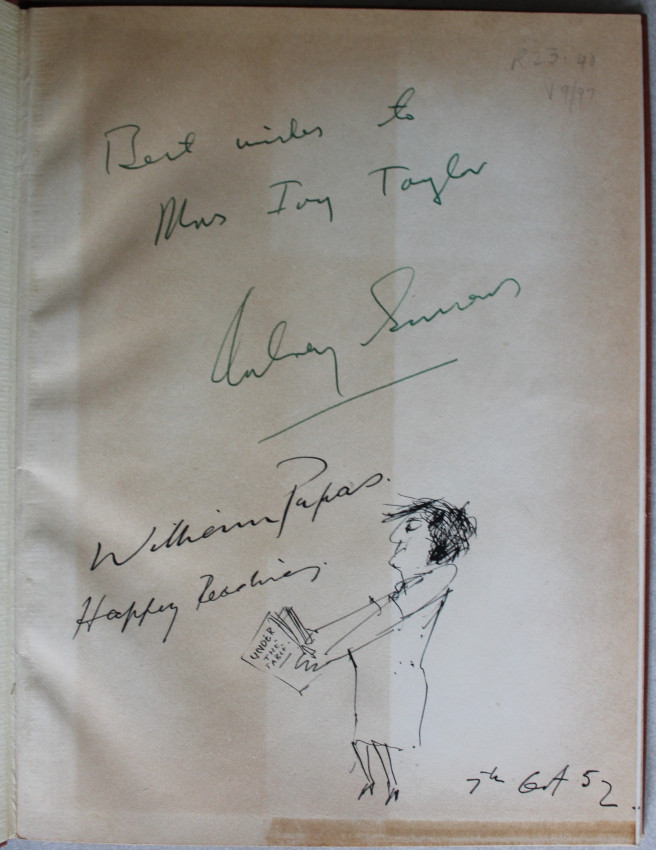 R23.40
V 9/97
Best wishes to
Mrs Ivy Taylor
Aubrey Sussens
William Papas.
Happy Reading.
UNDER
THE
TABLE.
7th Oct 52